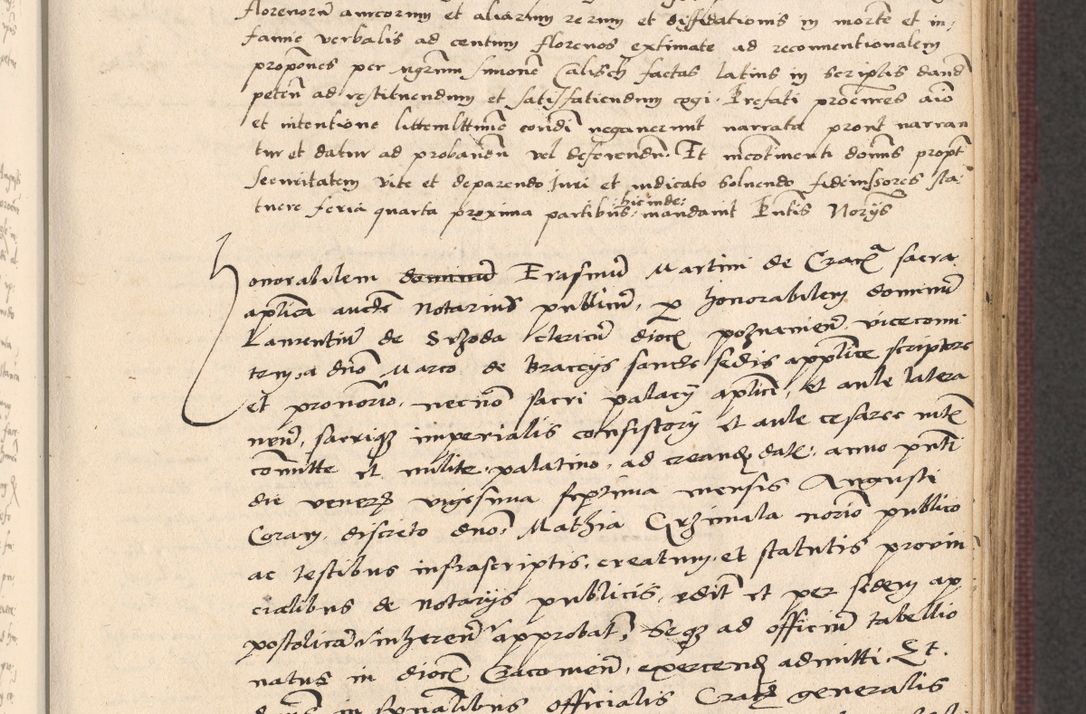 florenorum aureorum et aliarum rerum et diffidationis in morte et in,
famie verbalis ad centum florenos extimate ad reconventionalem
propones per ngrum Simone Calisch factas latius in scriptis dand
peten ad restituendum et satisfatiendum cogi. Prefati procures
et intentione condi negaverunt narrata prout narran
tur et datur ad probandu vel deferendu. Et incotinenti domus propt
securitatem vite et de parendo Juri et iudicato solvendo fideiussores sta,
tuere feria quarta proxima partibus hic inde: mandavit Pntis Norys
Honorabilem dominu Erasmu Martini de Crac sacra
aplica aucte Notariu publicu, p honorabilem dominu
Laurentiu de Szoda clericu dioc poznanien, vicecomi
tem, a dno Marco de Bracciis sancte sedis applice scriptore
et pronorio, necno sacri palacy aplici, et aule latera
nen, sacriq imperialis consistory et aule cesaree
comitte et milite, palatino, ad creand dat, anno pnti
die veneris vigesima septima mensis Augusti
Coram, discreto dno, Mathia Grzimala norio publico
ac testibus infrascriptis, creatum, et statutis provin
cialibus de notarys publicis, edit et per sedem ap
postolica, inheren approbat, Seq ad officiu tabellio
natus in dioc Cracovien, exercend admitti, Et.
dnus in spualibus officialis Crac generalis